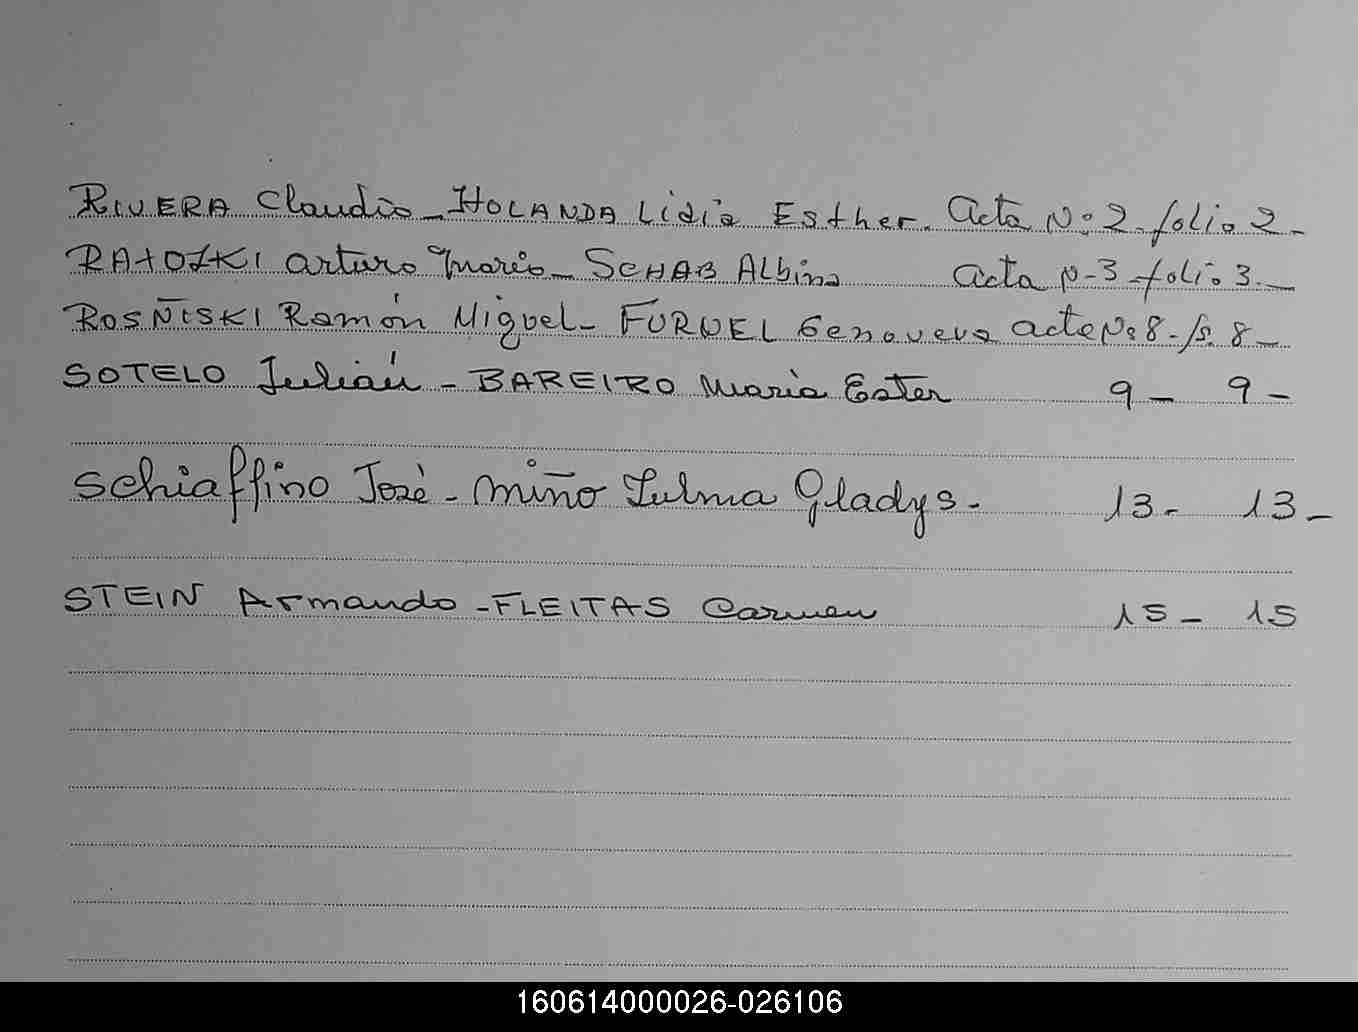 RIVERA Claudio - HOLANDA Lidia Esther. Acta Nº 2 - folio 2 -
Arturo Mario - SCHAB Albina Acta Nº 3 - folio 3 -
ROSÑISKI Ramón Miguel - FURNEL Genoveva acta Nº 8 - fº 8 -
SOTELO Julián - BAREIRO María Ester 9 - 9 -
Schiaffino José - Miño Zulma Gladys - 13 - 13 -
STEIN Armando - FLEITAS Carmen 15 - 15
160614000026-026106